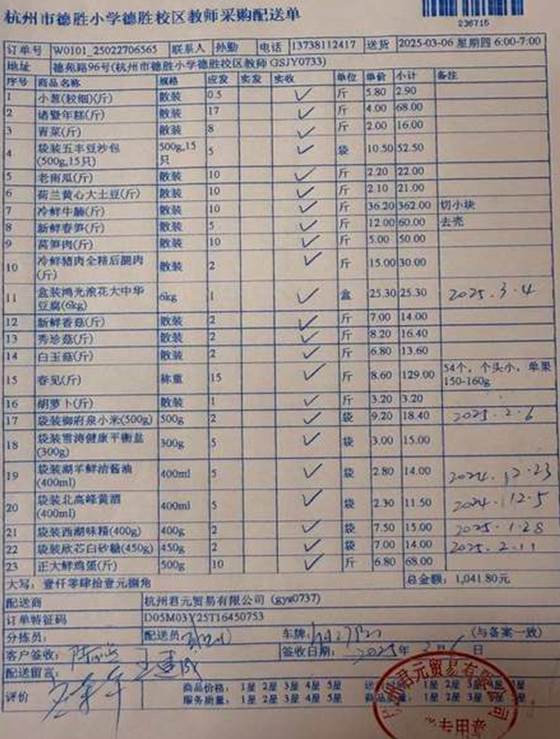 杭州市德胜小学德胜校区教师采购配送单
236715
订单号 W0101_25022706565 联系人 孙勤 电话 13738112417 送货 2025-03-06 星期四 6:00-7:00
地址 德苑路96号(杭州市德胜小学德胜校区教师 GSJY0733)
序号 商品名称 规格 应发 实发 实收 单位 单价 小计 备注
1 小葱(较细)(斤) 散装 0.5 ✓ 斤 5.80 2.90
2 诸暨年糕(斤) 散装 17 ✓ 斤 4.00 68.00
3 青菜(斤) 散装 8 ✓ 斤 2.00 16.00
4 袋装五丰豆沙包(500g,15只) 500g,15只 5 ✓ 袋 10.50 52.50
5 老南瓜(斤) 散装 10 ✓ 斤 2.20 22.00
6 荷兰黄心大土豆(斤) 散装 10 ✓ 斤 2.10 21.00
7 冷鲜牛腩(斤) 散装 10 ✓ 斤 36.20 362.00 切小块
8 新鲜春笋(斤) 散装 5 ✓ 斤 12.00 60.00 去壳
9 莴笋肉(斤) 散装 10 ✓ 斤 5.00 50.00
10 冷鲜猪肉全精后腿肉(斤) 散装 2 ✓ 斤 15.00 30.00
11 盒装鸿光浪花大中华豆腐(6kg) 6kg 1 ✓ 盒 25.30 25.30 2025.3.4
12 新鲜香菇(斤) 散装 2 ✓ 斤 7.00 14.00
13 秀珍菇(斤) 散装 2 ✓ 斤 8.20 16.40
14 白玉菇(斤) 散装 2 ✓ 斤 6.80 13.60
15 春见(斤) 称重 15 ✓ 斤 8.60 129.00 54个，个头小，单果150-160g
16 胡萝卜(斤) 散装 1 ✓ 斤 3.20 3.20
17 袋装御府泉小米(500g) 500g 2 ✓ 袋 9.20 18.40 2025.2.6
18 袋装雪涛健康平衡盐(300g) 300g 5 ✓ 袋 3.00 15.00
19 袋装湖羊鲜洁酱油(400ml) 400ml 5 ✓ 袋 2.80 14.00 2024.12.23
20 袋装北高峰黄酒(400ml) 400ml 5 ✓ 袋 2.30 11.50 2024.12.5
21 袋装西湖味精(400g) 400g 2 ✓ 袋 7.50 15.00 2025.1.28
22 袋装欣芯白砂糖(450g) 450g 2 ✓ 袋 7.00 14.00 2025.2.11
23 正大鲜鸡蛋(斤) 500g 10 ✓ 斤 6.80 68.00
大写: 壹仟零肆拾壹元捌角 总金额: 1,041.80元
配送商 杭州君元贸易有限公司 (gys0737)
订单特征码
分拣员: 配送员: 车牌: (与备案一致)
客户签收: 签收日期: 2025年3月6日
配送留言:
评价 商品价格: 1星 2星 3星 4星 5星
服务质量: 1星 2星 3星 4星 5星
君元贸易有限公司
专用章